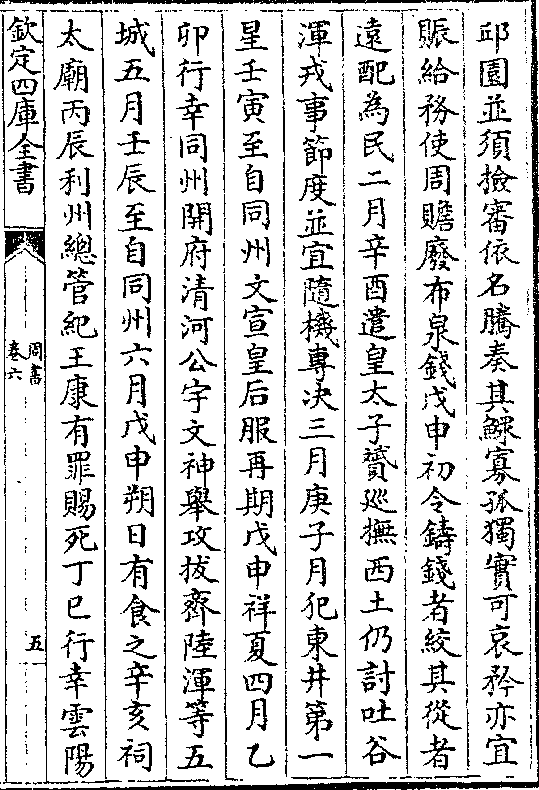 邱園並須撿審依名騰奏其鰥寡孤獨實可哀矜亦宜
賑給務使周贍廢布泉錢戊申初令鑄錢者絞其從者
遠配為民二月辛酉遣皇太子贇廵撫西土仍討吐谷
渾戎事節度並宜隨機專决三月庚子月犯東井第一
星壬寅至自同州文宣皇后服再期戊申祥夏四月乙
卯行幸同州開府清河公宇文神舉攻拔齊陸渾等五
城五月壬辰至自同州六月戊申朔日有食之辛亥祠
太廟丙辰利州總管紀王康有罪賜死丁巳行幸雲陽
欽定四庫全書
周書
卷六
五